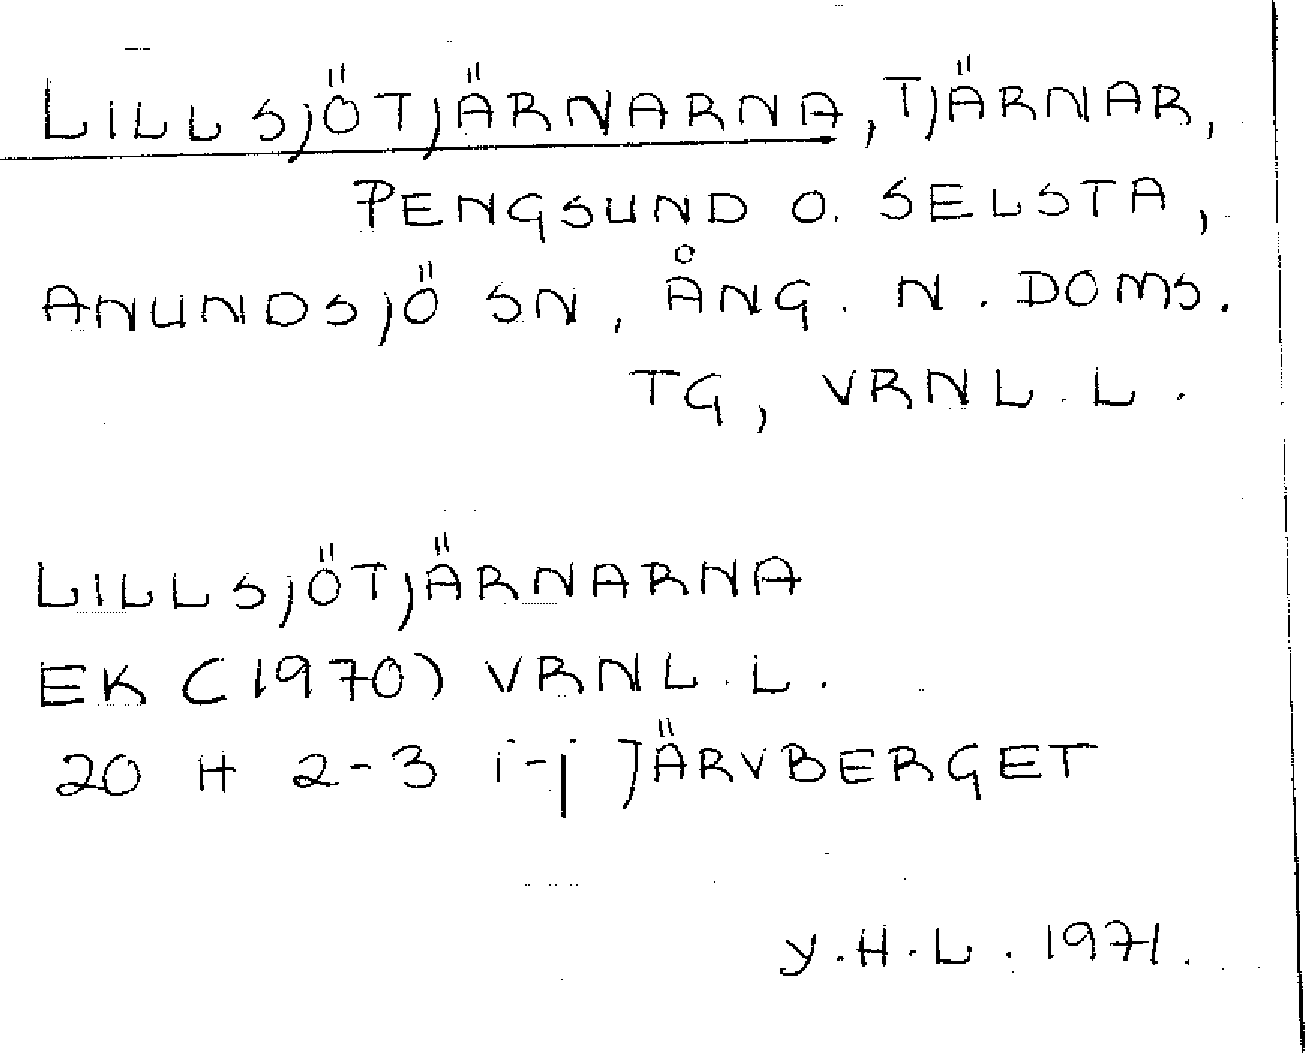 LILLSJÖTJÄRNARNA, TJÄRNAR,
PENGSUND O. SELSTA,
ANUNDSJÖ SN, ÅNG. N. DOMS.
TG, VRNL.L.
LILLSJÖTJÄRNARNA
EK (1970) VRNL.L.
20 H 2-3 i-j JÄRVBERGET
Y.H.L. 1971.